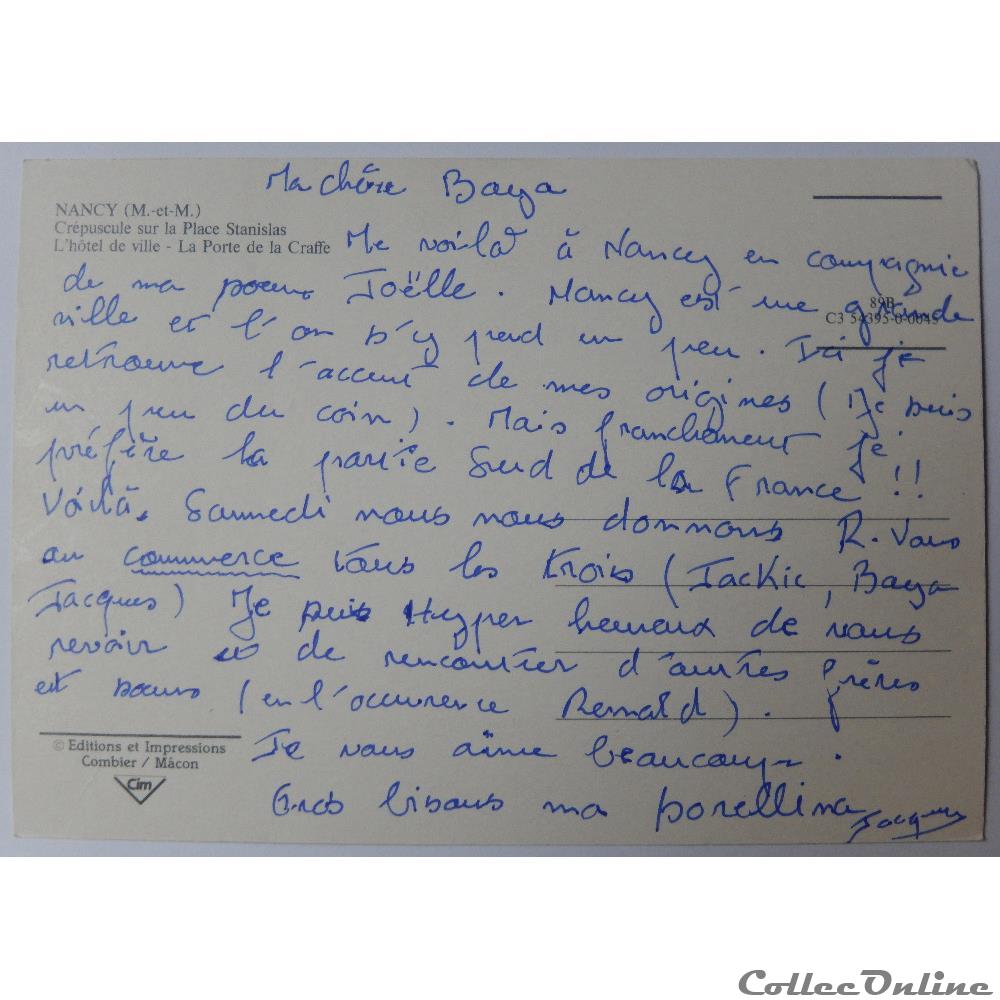 Ma chère Baya
NANCY (M.-et-M.)
Crépuscule sur la Place Stanislas
L'hôtel de ville - La Porte de la Craffe
Me voilà à Nancy en compagnie
de ma soeur Joëlle. Nancy est une grande
89B
C3 54395-0-0045
ville et l'on s'y perd un peu. Ici je
retrouve l'accent de mes origines (Je suis
un peu du coin). Mais franchement je
préfère la partie Sud de la France !!
Voilà. Samedi nous nous donnons R. Vous
au commerce tous les trois (Jackie, Baya
Jacques) Je suis Hyper heureux de vous
revoir et de rencontrer d'autres frères
et soeurs (en l'occurence Renald).
Je vous aime beaucoup.
© Editions et Impressions
Combier / Mâcon
Cim
Gros bisous ma sorellina
Jacques
CollecOnline